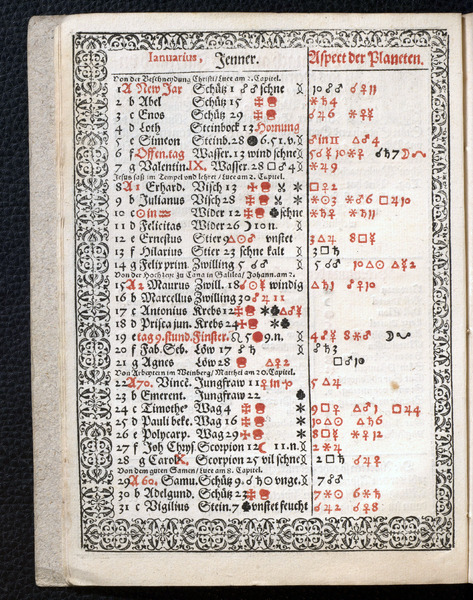 Ianuarius, Jenner. Aspect der Planeten.
Von der Beschneydung Christi/Luce am 2. Capitel.
1 A New Jar Schütz 1 ☍♂ schne 10 ☍♂ ☌♀♃
2 b Abel Schütz 15 ✶♄4
3 c Enos Schütz 29 ☌♃6 ✶☿♀
4 d Loth Steinbock 13 Hornung
5 e Simeon Steinb. 28 ● 6.51.v. ♂in♊ △♂4
6 f Offen.tag Wasser. 13 wind schne 5☌☿ 10✶♀ ☌♄7
7 g Valentin. IX. Wasser. 28 □♂4 ✶♃9
Jesus saß im Tempel und lehret/Luce am 2. Capitel.
8 A1 Erhard. Visch 13 □♀2
9 b Julianus Visch 28 ✶☉3 ✶♂6 □♃10
10 c ☉in♒ Wider 12 schne ✶♄♀ ✶♄11
11 d Felicitas Wider 26 ☽ 10 n.
12 e Ernestus Stier 9 △☉♂ vnstet 3△♃ 8□☿
13 f Hilarius Stier 23 schne kalt 3□♄
14 g Felix prim. Zwilling 5 ☍♂ 5 ☍♂ 10△☉ △☿2
Von der Hochzeit zu Cana in Galilea/Johann. am 2.
15 A2 Maurus Zwill. 18 ☌☉☿ windig △♄1 ☌♀10
16 b Marcellus Zwilling 30 ♂♃11
17 c Antonius Krebs 12 △♂☿
18 d Prisca jun. Krebs 24
19 e tag 9. stund. Finster. ♌ 5 9.n. 4☍☿ 8✶♂
20 f Fab. Seb. Löw 17 ☍♄ ☍♄3
21 g Agnes Löw 28 △♀2 □♂10
Von Arbeytern im Weinberg/Matthei am 20. Capitel.
22 A70. Vincē. Jungfraw 11 ♀in 5△♃
23 b Emerent. Jungfraw 22
24 c Timothe⁹ Wag 4 9□♀ △♂1 □♃4
25 d Pauli beke. Wag 16 10△☉ △♄6
26 e Polycarp. Wag 29 8□☿ ✶♀12
27 f Joh Chrys. Scorpion 12 ☾ 11.n. 2✶♃
28 g Carol⁹ X. Scorpion 25 vil schne 2□♄ ☌♃♀
Von dem guten Samen/Luce am 8. Capitel.
29 A60. Samu. Schütz 9. ☌♄☉ vnge. 7☍♂
30 b Adelgund. Schütz 23 7✶☉ 6✶♄
31 c Vigilius Stein. 7 vnstet feucht ☌♃2 ☌♀8